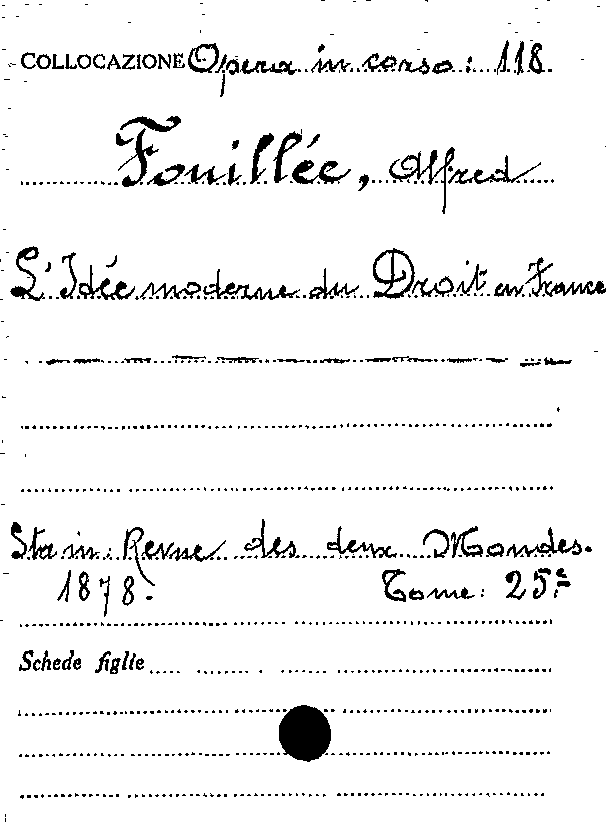 COLLOCAZIONE Opera in corso: 118.
Fouillée, Alfred
L'Idée moderne du Droit en France
Sta in: Revue des deux Mondes.
1878. Tome: 25.e
Schede figlie